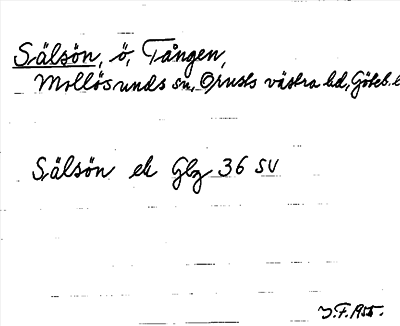 Sälsön, ö, Tången,
Mollösunds sn, Orusts västra hd, Göteb.
Sälsön ek Gbg 36 SV
J.F. 1955.